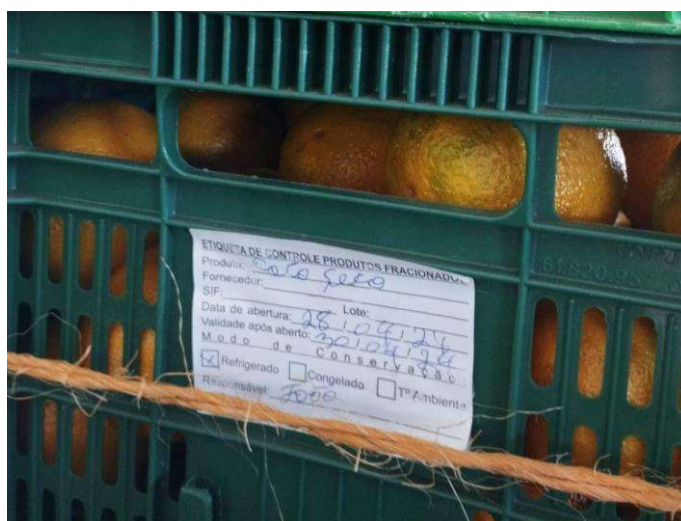 ETIQUETA DE CONTROLE PRODUTOS FRACIONADOS
Produto: Coco Seco
Fornecedor:
SIF: Lote:
Data de abertura: 28/04/24
Validade após aberto: 30/04/24
Modo de Conservação:
Refrigerado Congelado Tº Ambiente
Responsável: João